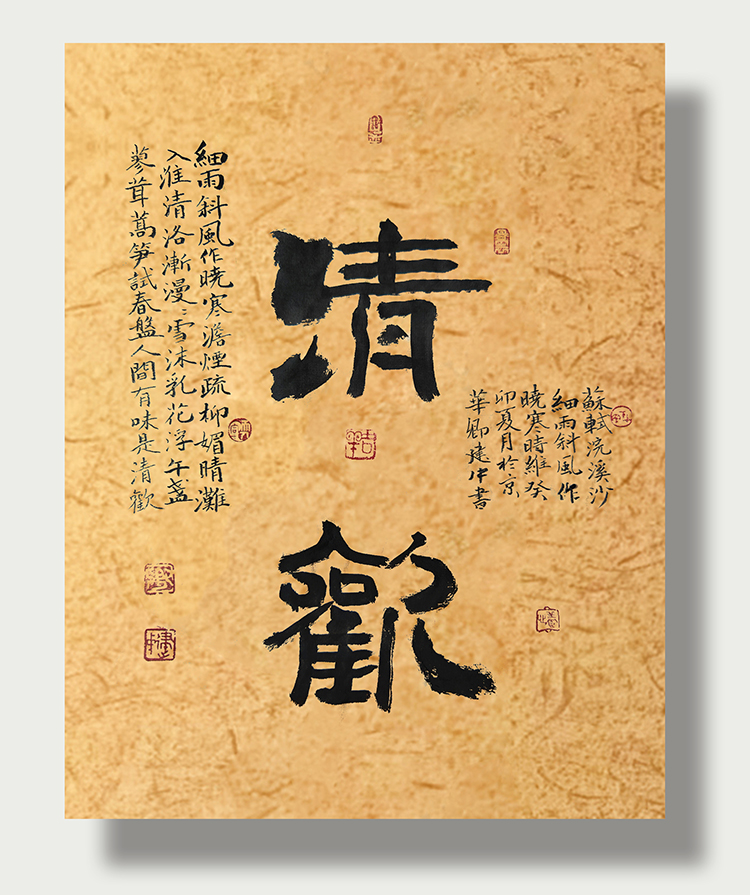 蘇軾浣溪沙
細雨斜風作
曉寒時維癸
卯夏月於京
華卿建中書
清歡
細雨斜風作曉寒澹煙疏柳媚晴灘
入淮清洛漸漫〻雪沫乳花浮午盞
蓼茸蒿笋試春盤人間有味是清歡